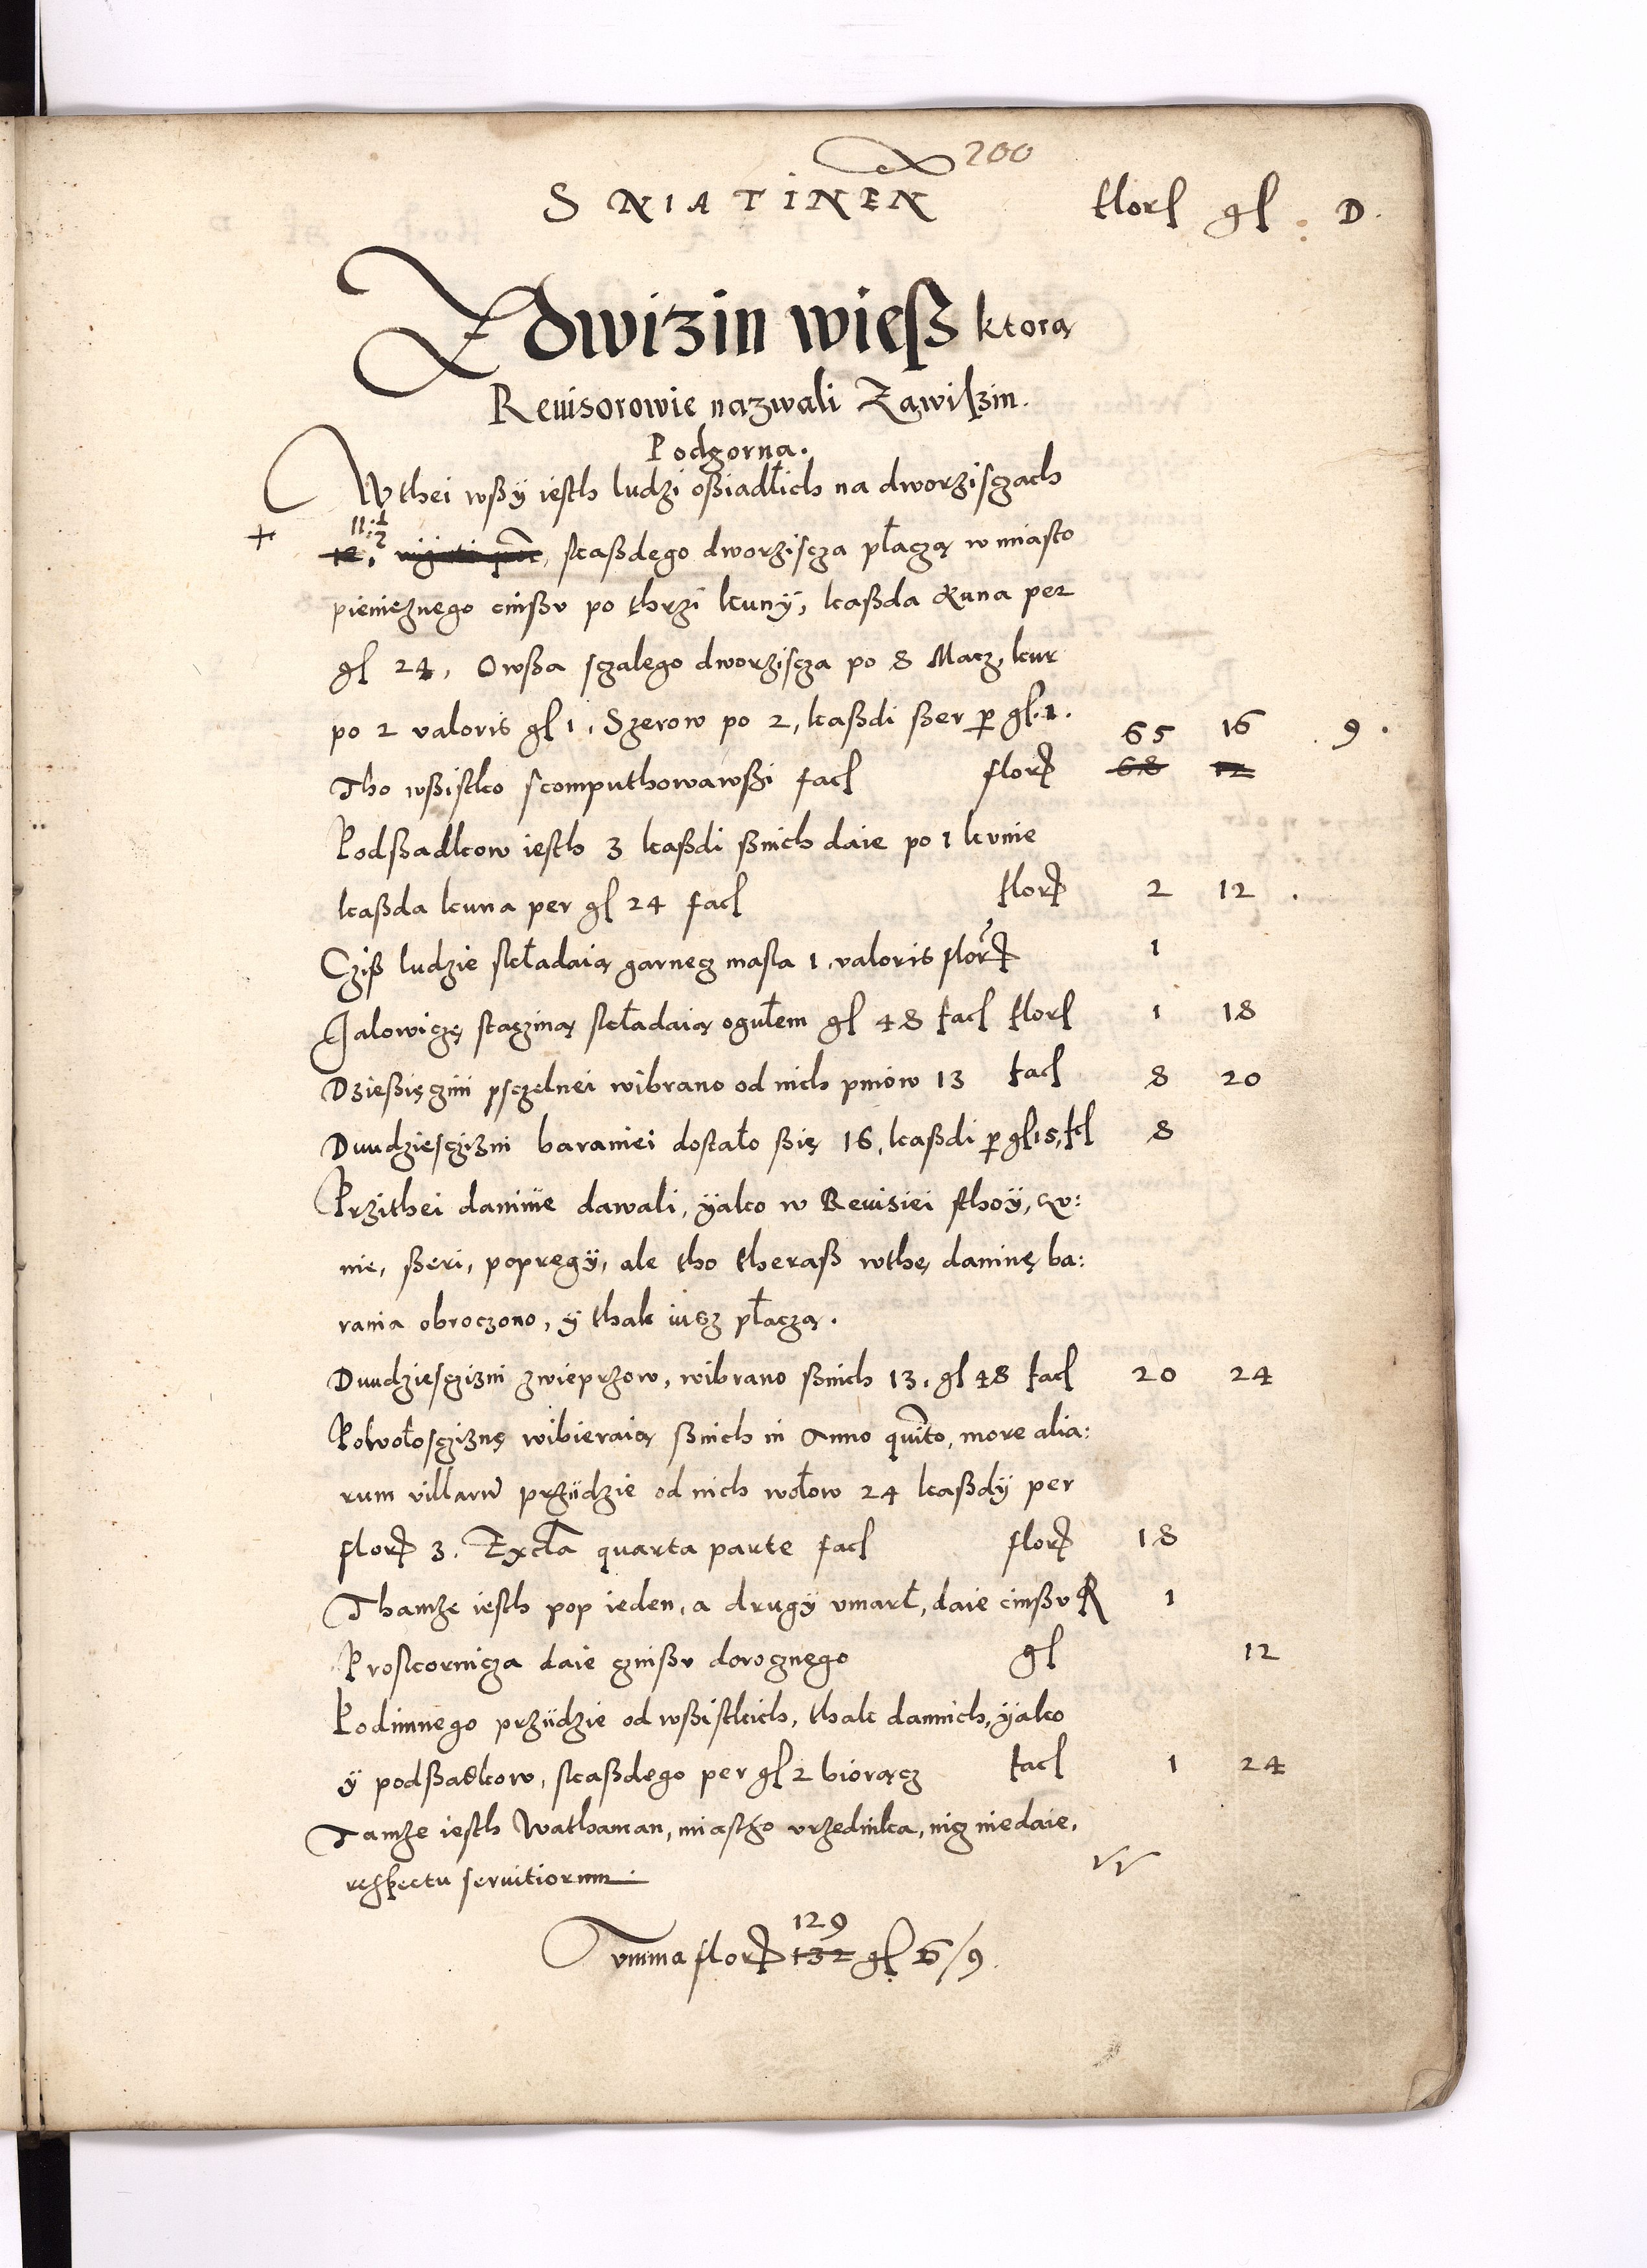 200
SNIATINEN flor gl D.
Zdwizin wieß ktorą
Reuisorowie nazwali Zawiszin.
Podgorna.
W thei wßÿ iesth ludzi oßiadłich na dworziszach
+ 11 1/2
12, skaßdego dworziscza płaczą w miasto
pieniężnego cinßv po thrzi kunÿ, kaßda kuna per
gl 24, Owßa sczalego dworziscza po 8 Macz, kur
po 2 valoris gl 1, Szerow po 2, kaßdi ßer p gl 1. 65 16 9.
Tho wßistko skomputhowawßi facl flor 68 12
Podßadkow iesth 3 kaßdi ßnich daie po 1 kvnie
kaßda kuna per gl 24 facl flor 2 12.
Cziß ludzie składaią garnecz masla 1, valoris flor 1
Jalowiczę stacziną składaią ogułem gl 48 facl flor 1 18
Dzießięczini psczelnei wibrano od nich pniow 13 facl 8 20
Dwudziesczizni baraniei dostało ßię 16, kaßdi p gl 15, fcl 8
Przithei daninie dawali, ÿako w Reuisiei sthoÿ, kv:
nie, ßeri, popręgÿ, ale tho theraß wthę daninę ba:
rania obroczono, ÿ thak iusz płaczą.
Dwudziesczizni zwieprzow, wibrano ßnich 13. gl 48 facl 20 24
Powołoscziznę wibieraią ßnich in Anno quito, more alia:
rum villarum prziidzie od nich wołow 24 kaßdÿ per
flor 3. Excta quarta parte facl flor 18
Thamże iesth pop ieden, a drugÿ vmarł, daie cinßv R 1
Proskornicza daie czinßv dorocznego gl 12
Podimnego prziidzie od wßistkich, thak dannich, ÿako
ÿ podßadkow, skaßdego per gl 2 biorącz facl 1 24
Tamże iesth Wathaman, miasto vrzednika, nicz niedaie,
respectu seruitiorum
Summa flor 129
132 gl 6/9.